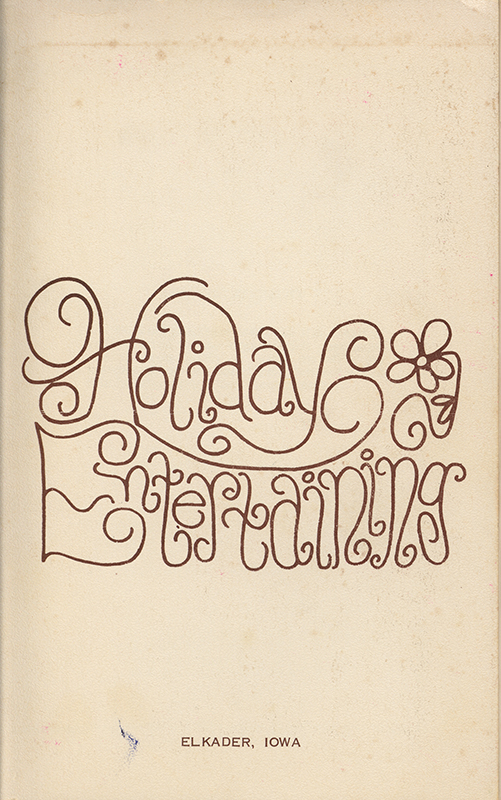 Holiday
Entertaining
ELKADER, IOWA